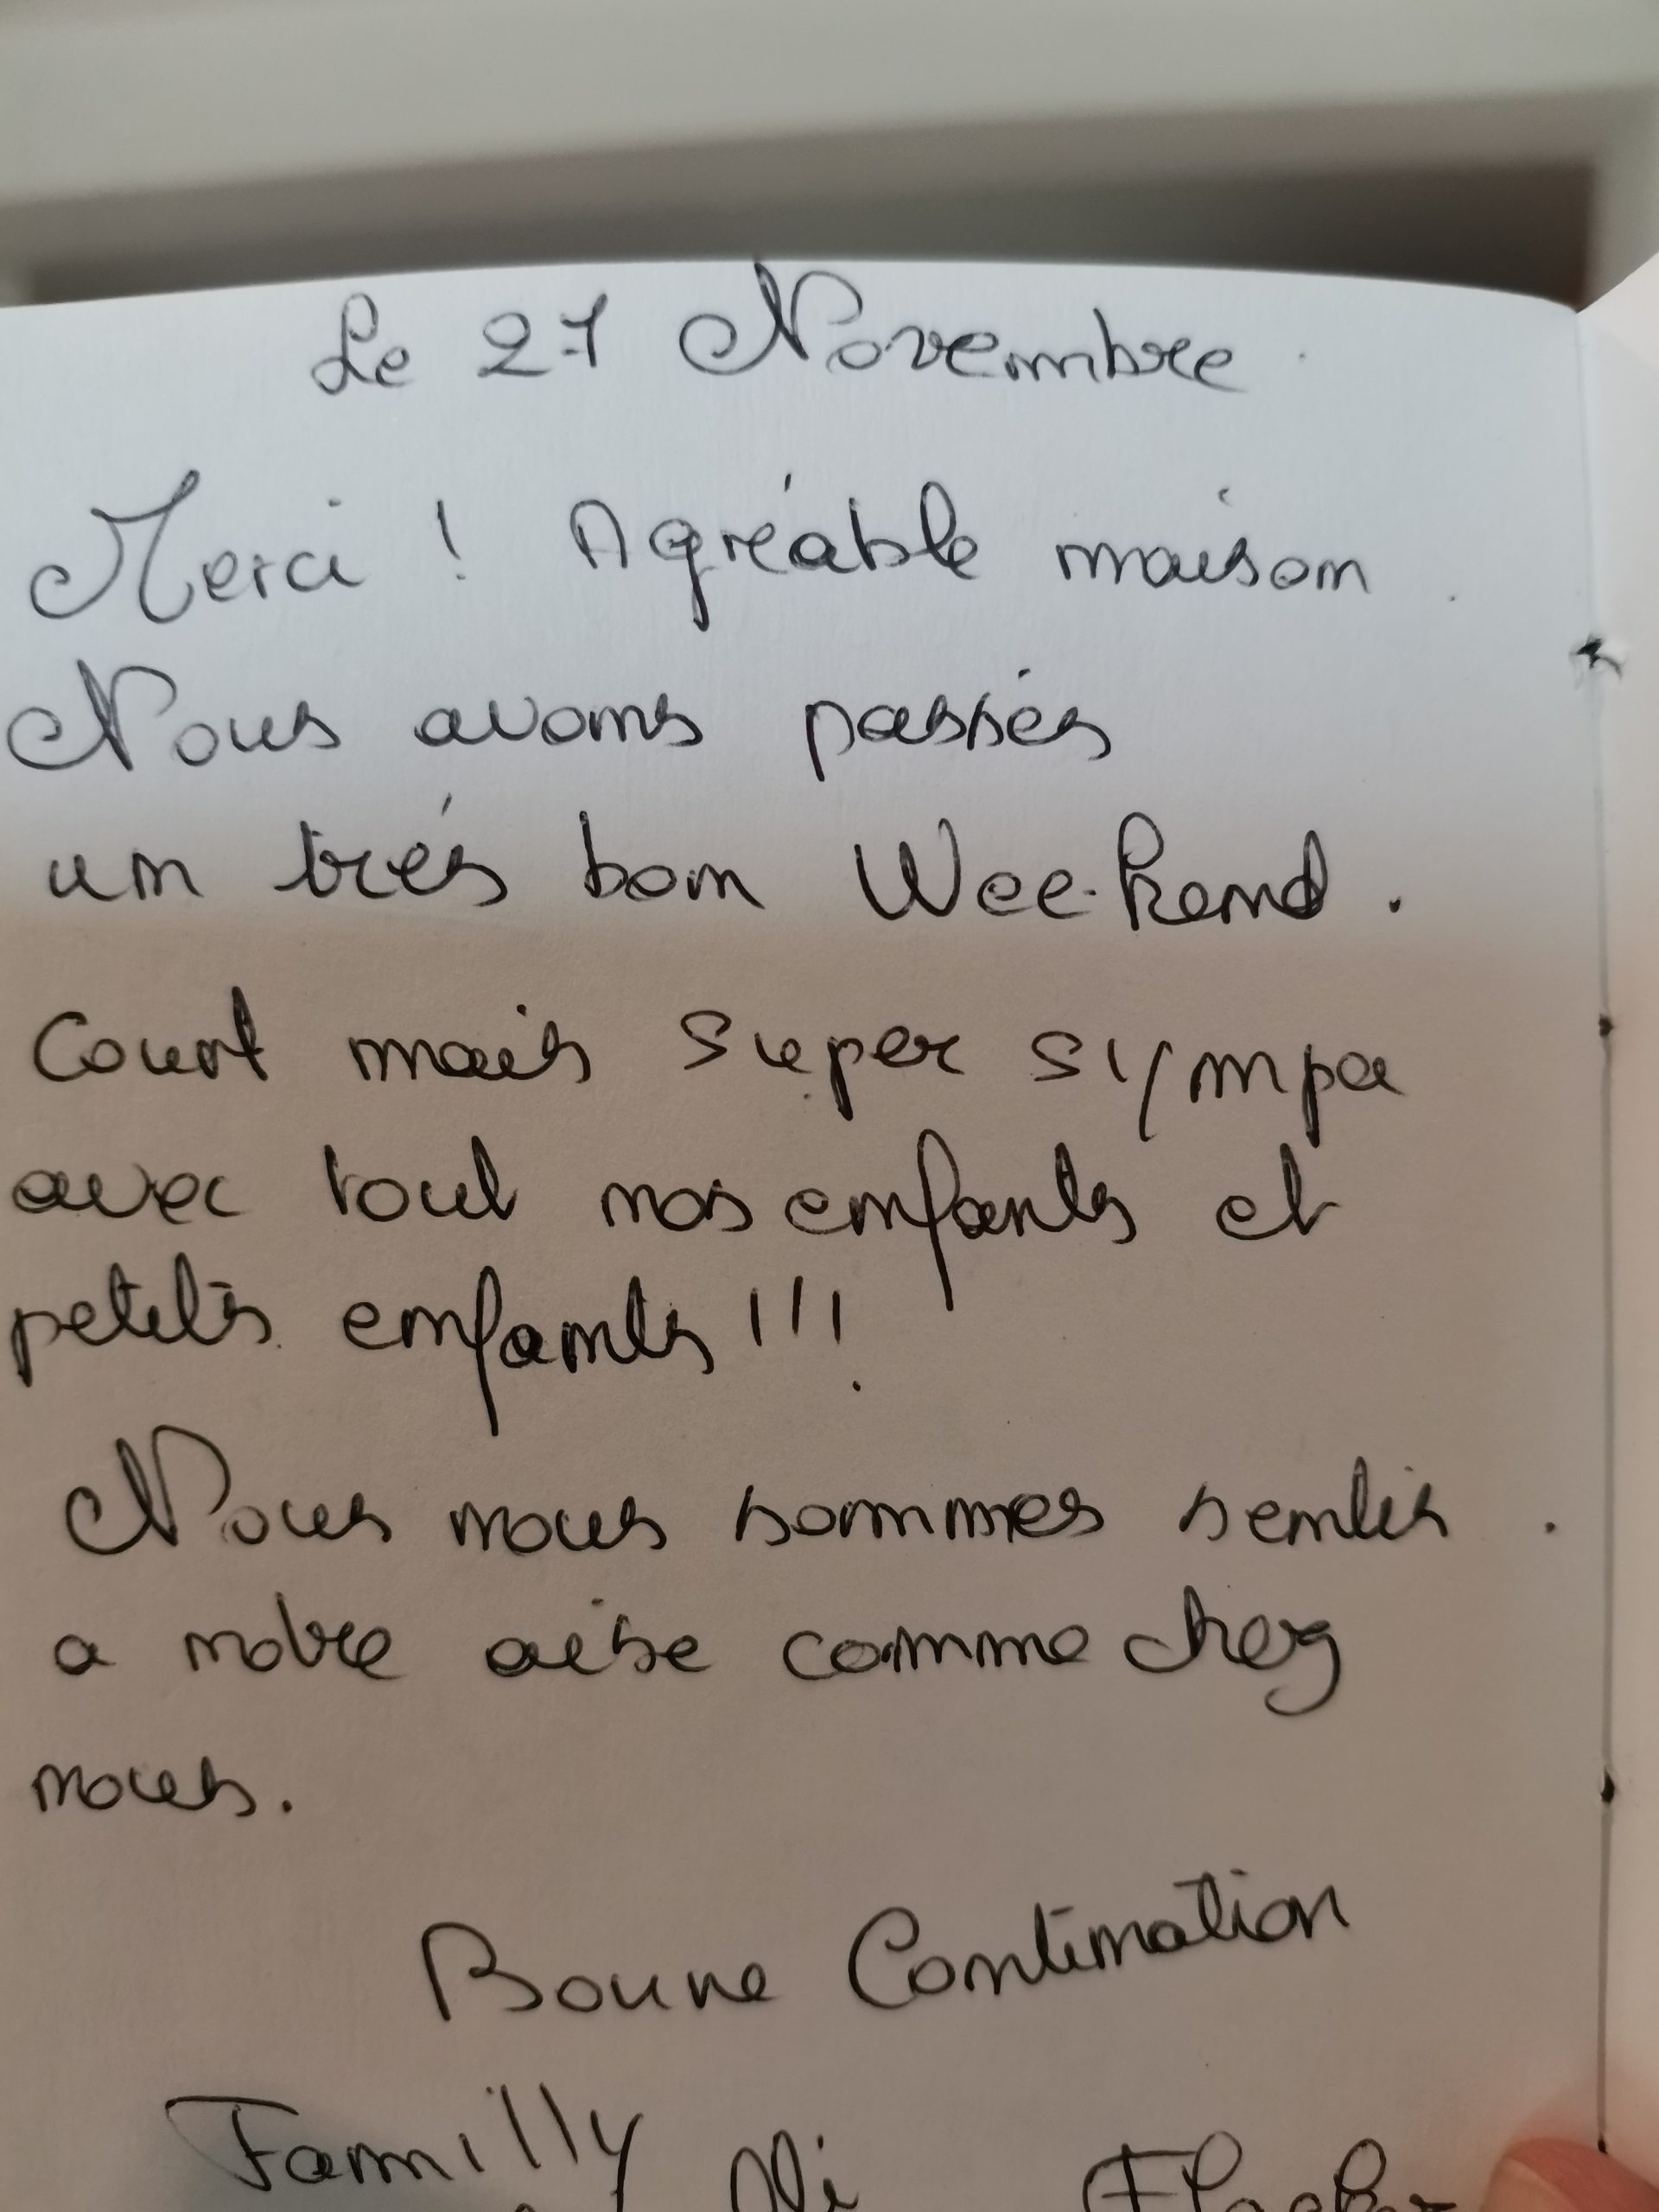 Le 27 Novembre
Merci ! Agréable maison.
Nous avons passés
un trés bon Week-end.
Court mais super sympa
avec tout nos enfants et
petits enfants !!!
Nous nous sommes sentis
a notre aise comme chez
nous.
Bonne Continuation
Familly